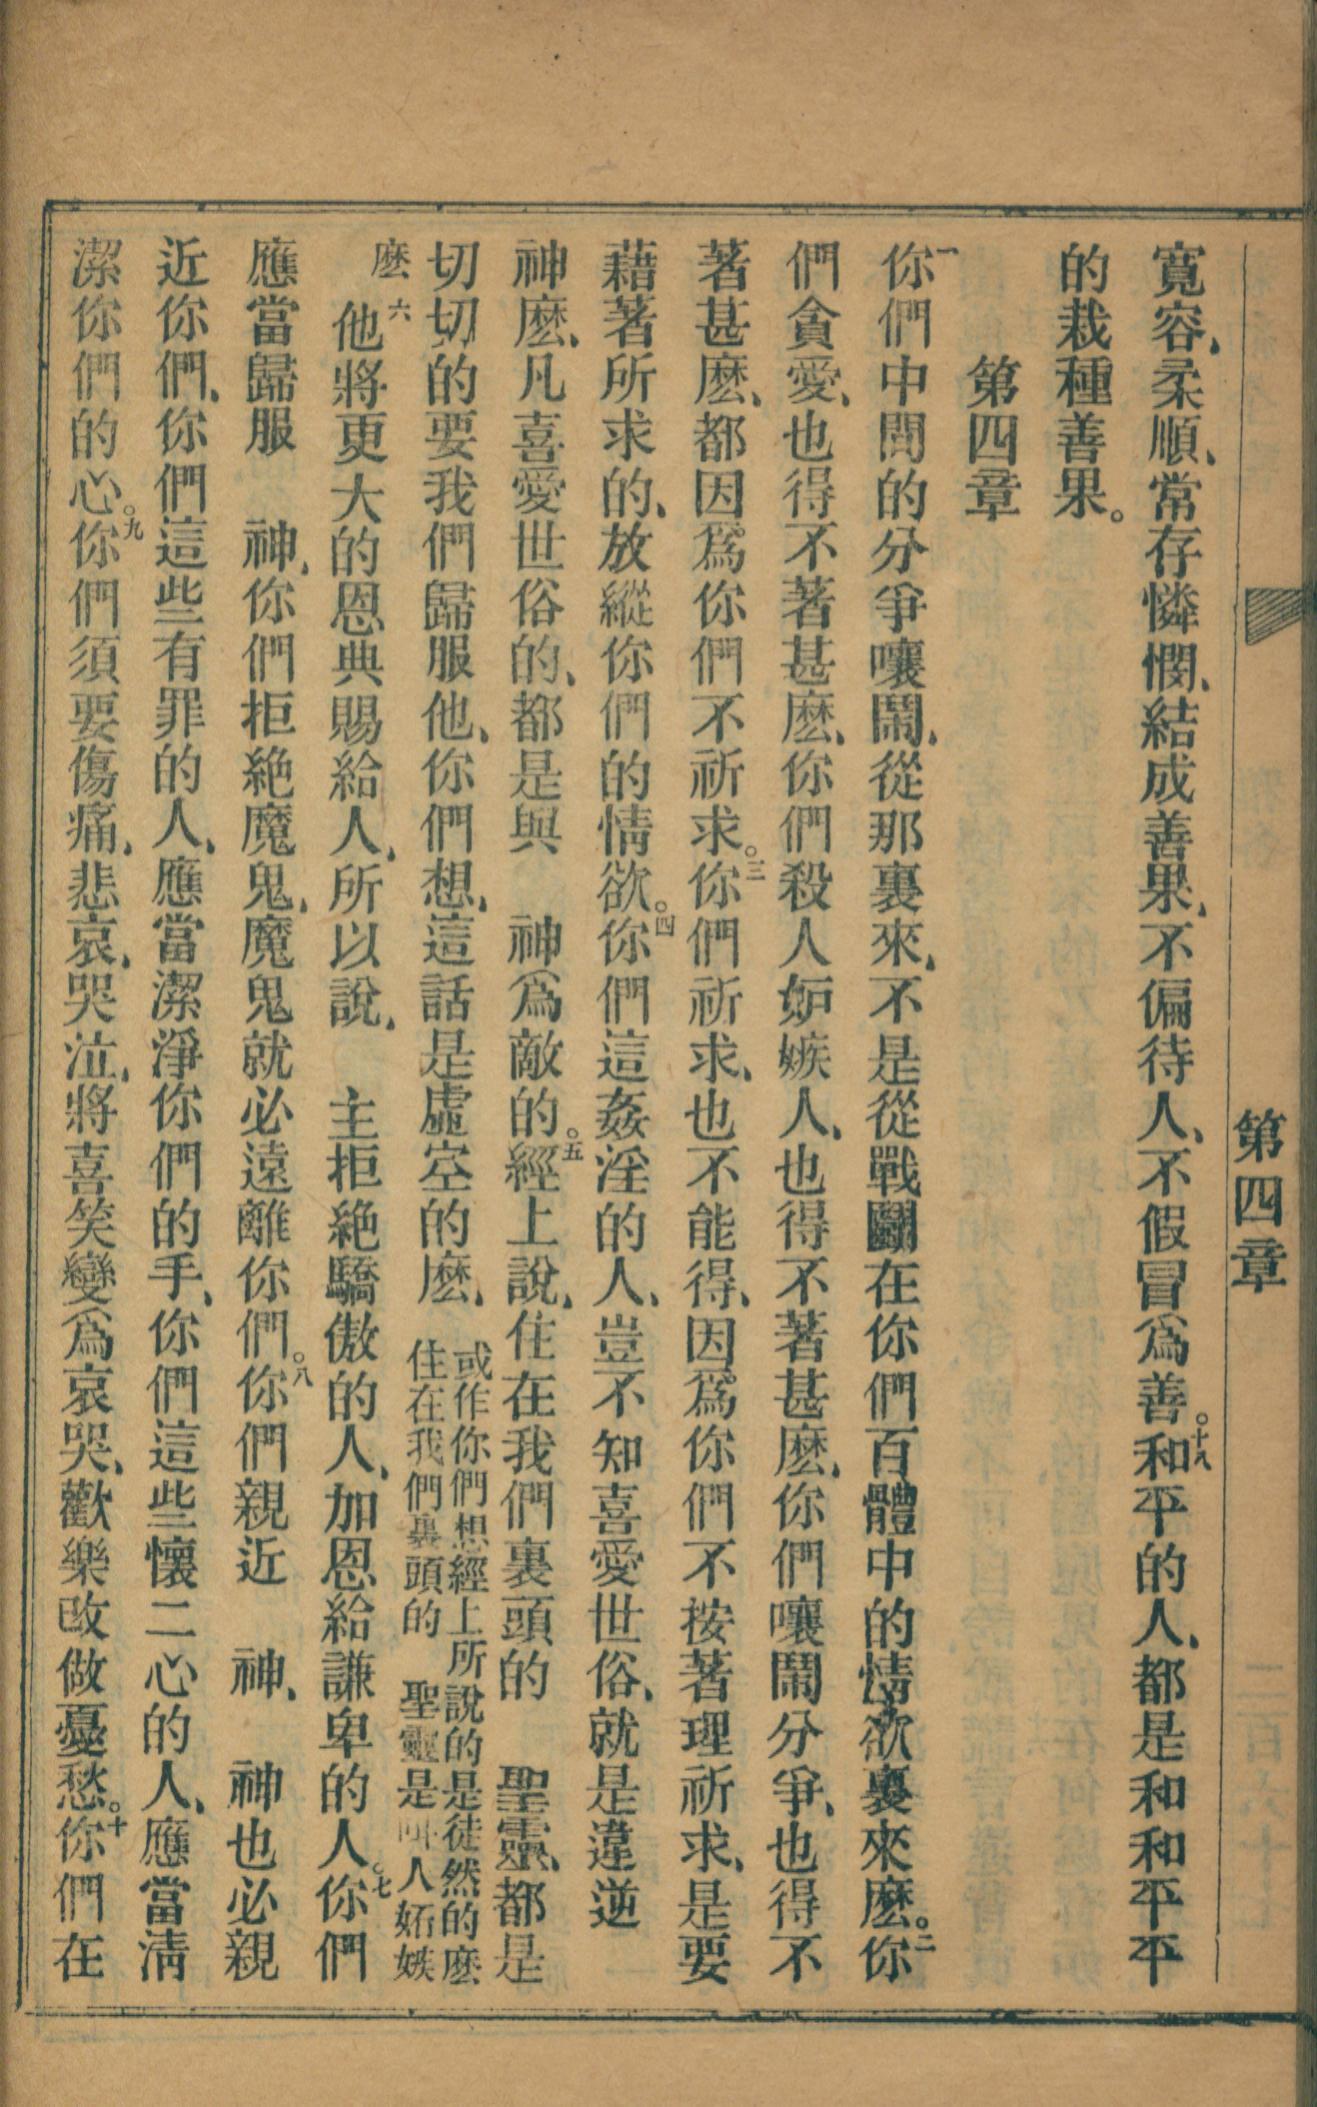 第四章
寬容、柔順、常存憐憫、結成善果、不偏待人、不假冒爲善。十八和平的人、都是和和平平
的栽種善果。
第四章
一你們中間的分爭嚷鬧、從那裏來、不是從戰鬬在你們百體中的情欲裏來麽。二你
們貪愛、也得不著甚麽、你們殺人妒嫉人、也得不著甚麽、你們嚷鬧分爭、也得不
著甚麽、都因爲你們不祈求。三你們祈求、也不能得、因爲你們不按著理祈求、是要
藉著所求的、放縱你們的情欲。四你們這姦淫的人、豈不知喜愛世俗、就是違逆
神麽、凡喜愛世俗的、都是與　神爲敵的。五經上說、住在我們裏頭的　聖靈、都是
切切的要我們歸服他、你們想、這話是虛空的麽、或作你們想經上所說的是徒然的麽住在我們裏頭的　聖靈是叫人妬嫉
麽六他將更大的恩典賜給人、所以說、　主拒絶驕傲的人、加恩給謙卑的人。七你們
應當歸服　神、你們拒絶魔鬼、魔鬼就必遠離你們。八你們親近　神、　神也必親
近你們、你們這些有罪的人、應當潔淨你們的手、你們這些懷二心的人、應當淸
潔你們的心。九你們須要傷痛、悲哀、哭泣、將喜笑變爲哀哭、歡樂改做憂愁。十你們在